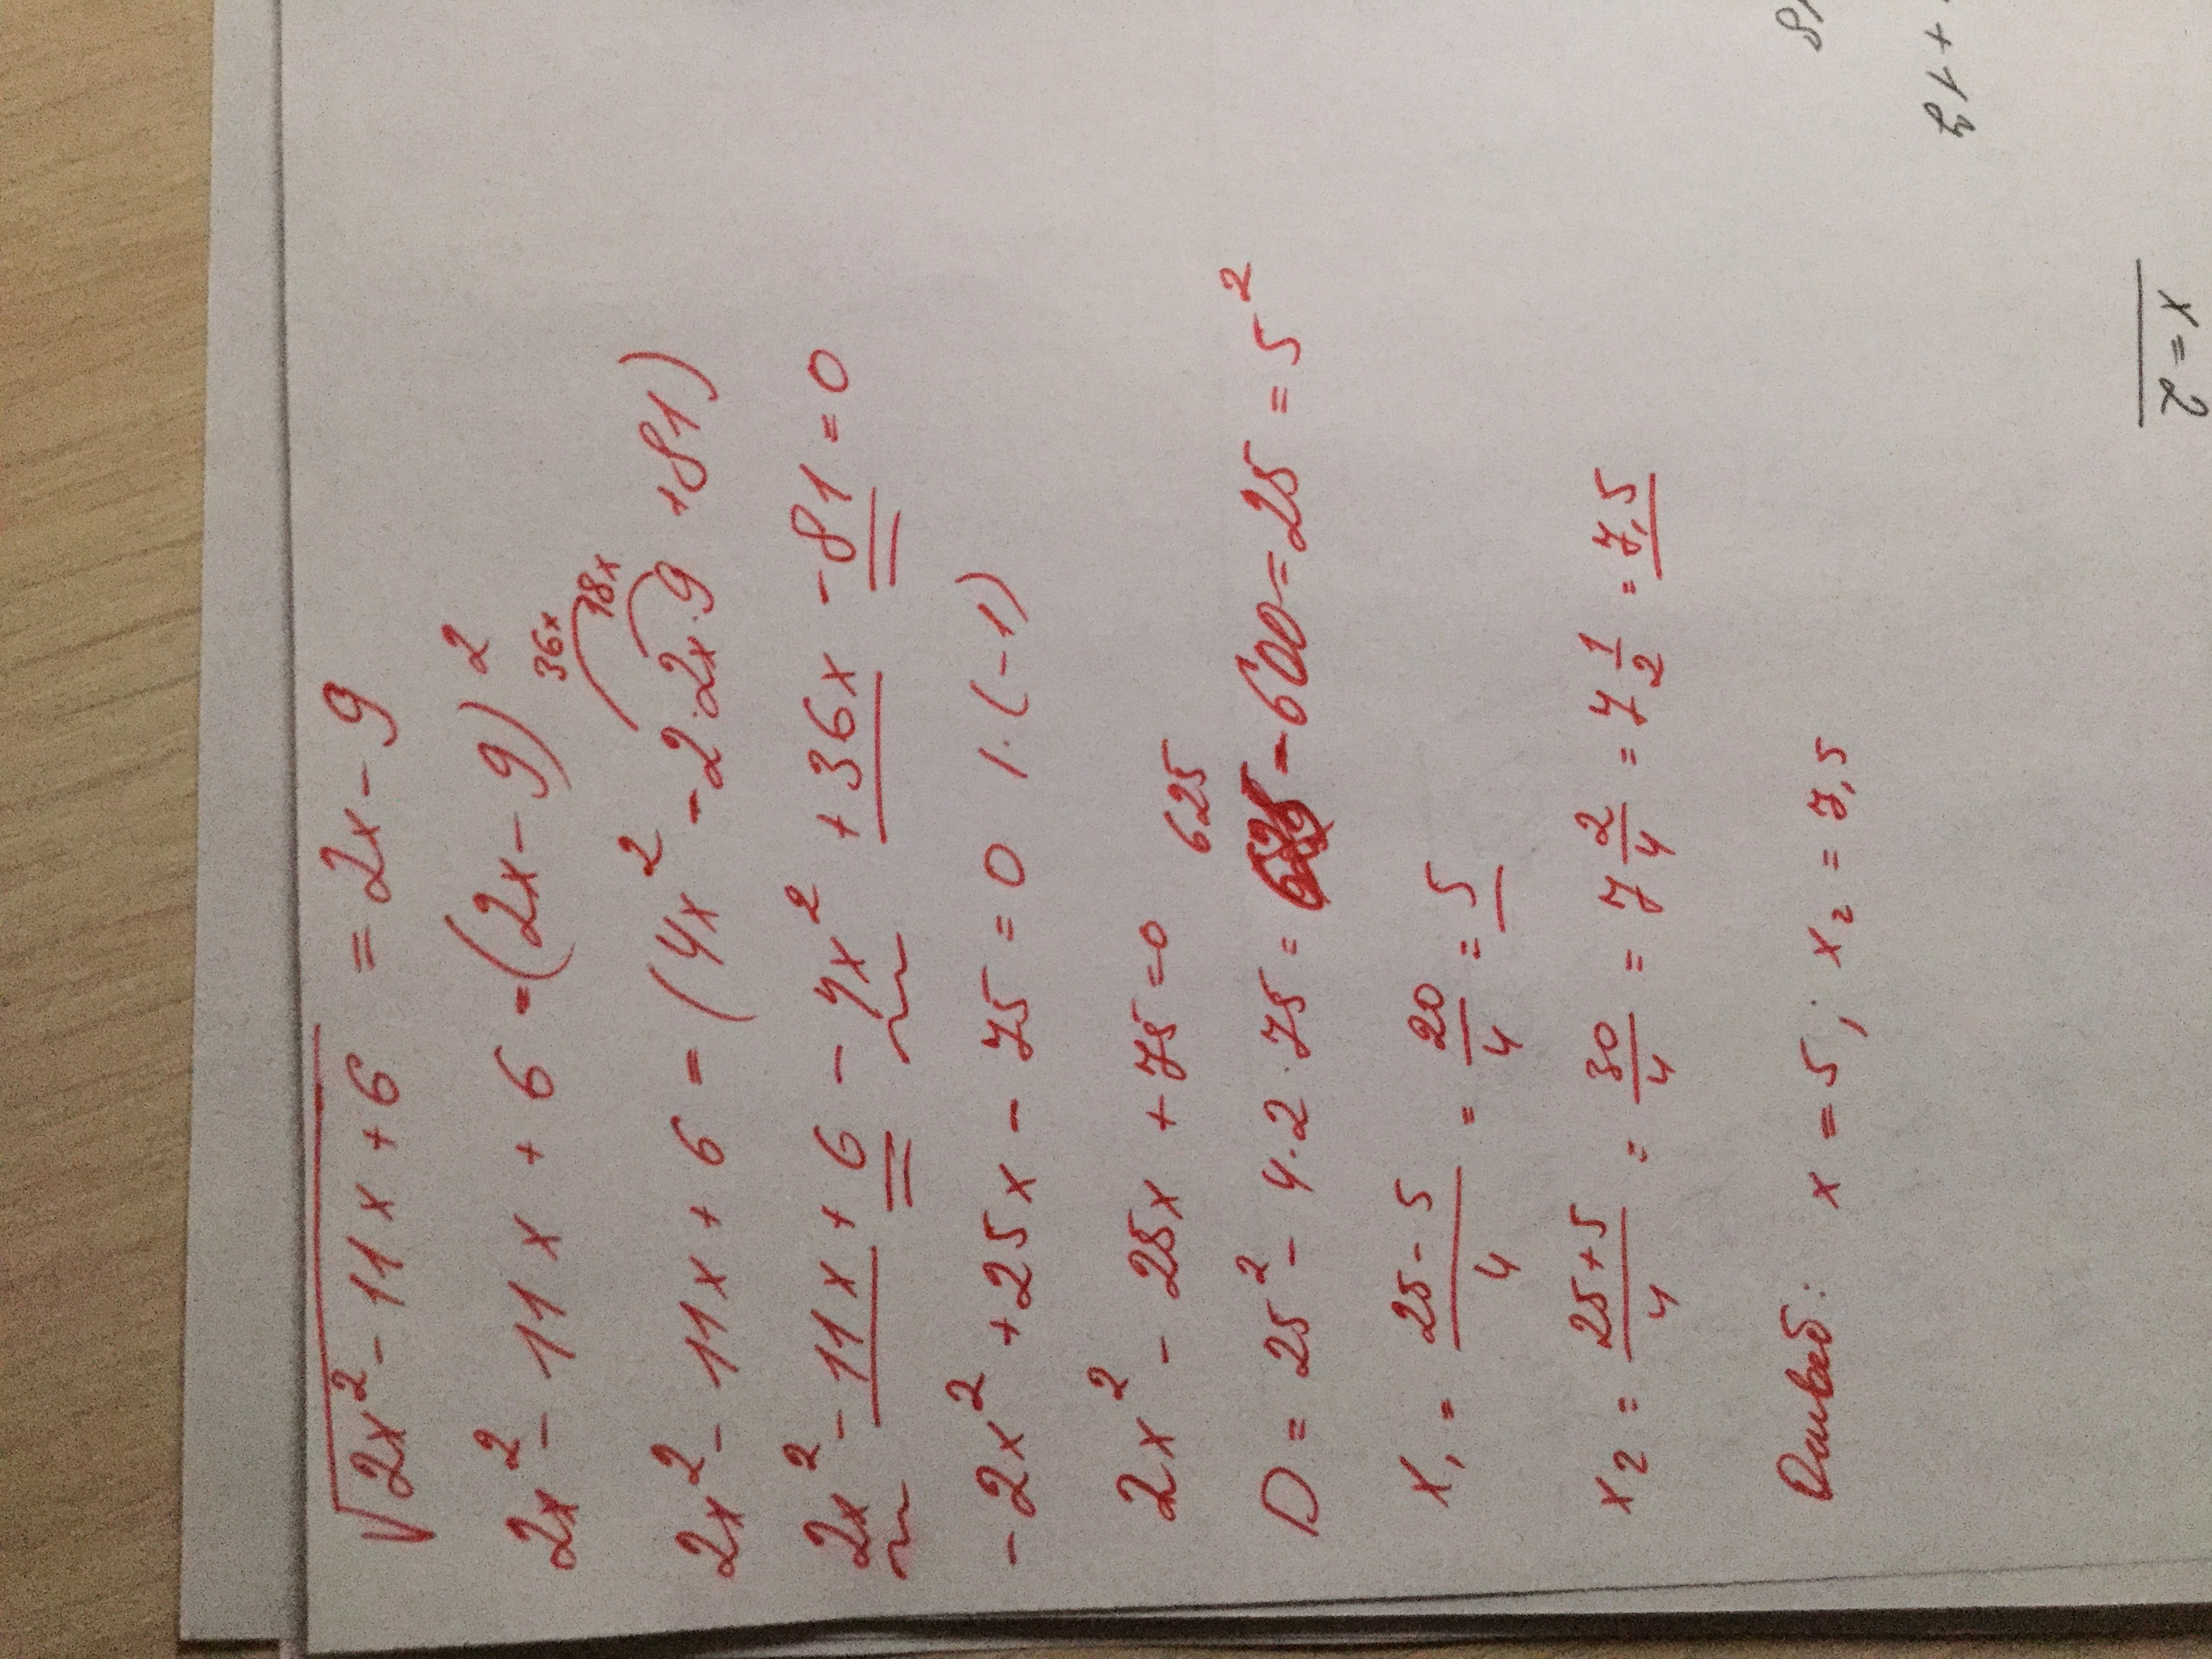 √2x² - 11x + 6 = 2x - 9
2x² - 11x + 6 = (2x - 9)²
36x
18x
2x² - 11x + 6 = (4x² - 2·2x·9 + 81)
2x² - 11x + 6 - 4x² + 36x - 81 = 0
-2x² + 25x - 75 = 0 | · (-1)
2x² - 25x + 75 = 0
625
D = 25² - 4·2·75 = - 600 = 25 = 5²
x₁ = (25 - 5)/4 = 20/4 = 5
x₂ = (25 + 5)/4 = 30/4 = 7 2/4 = 7 1/2 = 7,5
x = 5; x₂ = 7,5
x = 2